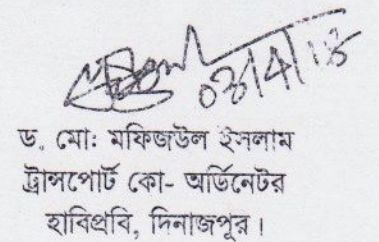 ড. মো: মফিজউল ইসলাম
ট্রান্সপোর্ট কো- অর্ডিনেটর
হাবিপ্রবি, দিনাজপুর।